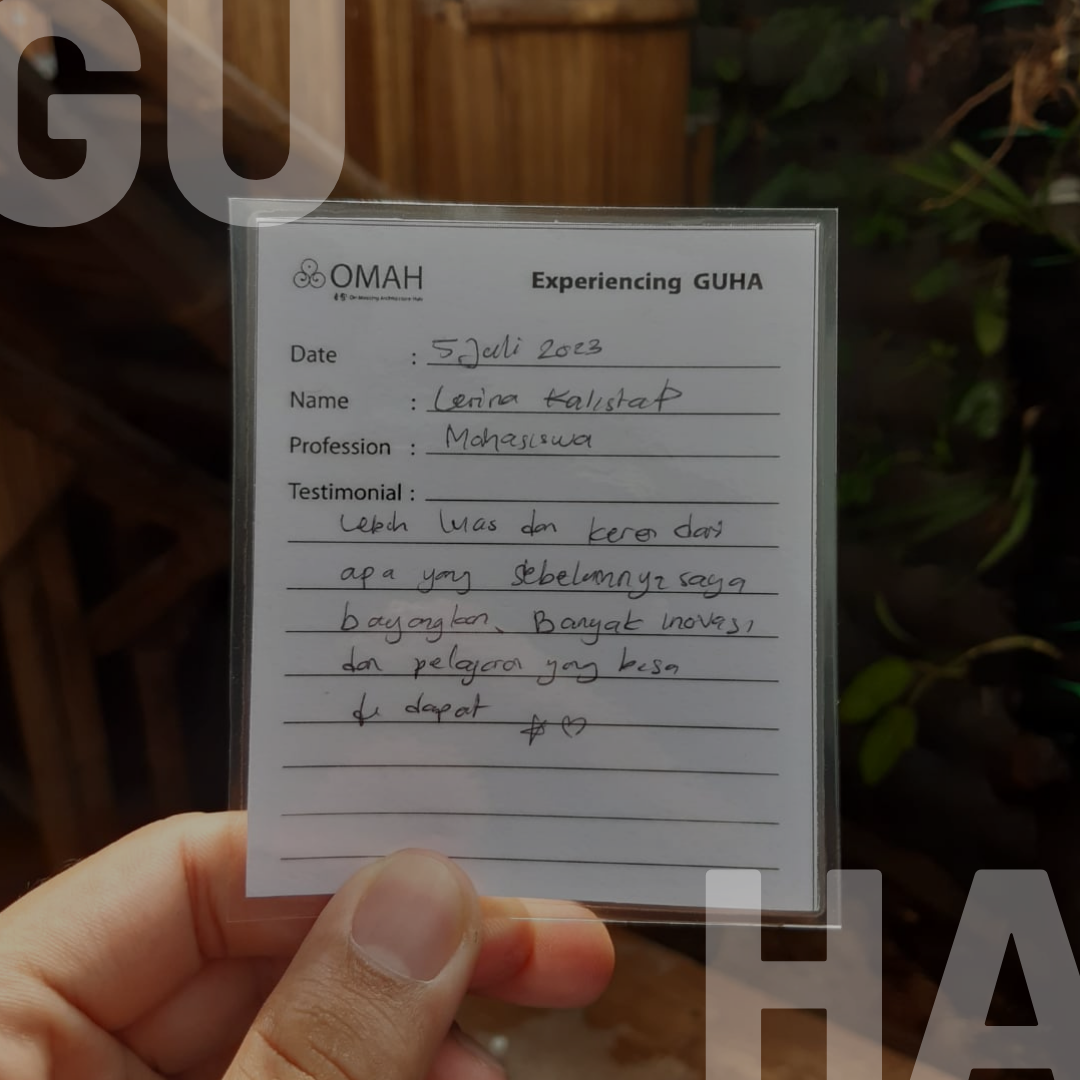 GU
OMAH
Experiencing GUHA
Date : 5 Juli 2023
Name : Lerina Kalista P
Profession : Mahasiswa
Testimonial :
Lebih luas dan keren dari
apa yang sebelumnya saya
bayangkan. Banyak inovasi
dan pelajaran yang bisa
di dapat
HA